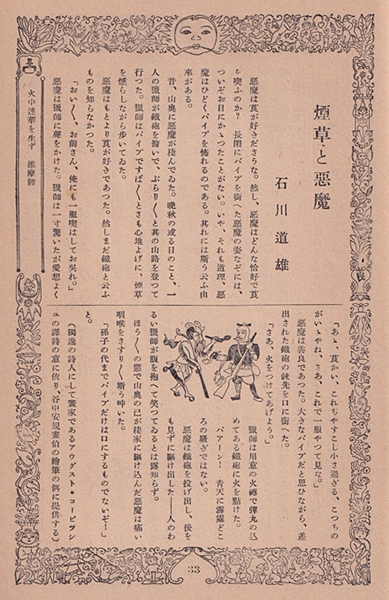 煙草と惡魔
石川道雄
惡魔は莨が好きださうな。然し、惡魔はどんな恰好で莨
を喫ふのか？　長閑にパイプを銜へた惡魔の姿なぞには、
ついぞお目にかゝつたことがない。いや、それも道理、惡
魔はひどくパイプを怖れるのである。其れには斯う云ふ由
來がある。
昔、山奥に惡魔が棲んでゐた。晩秋の或る日のこと、一
人の獵師が鐵砲を擔いで、ぶらり〳〵と其の山路を登つて
行つた。獵師はパイプですぱ〳〵とさも心地よげに、煙草
を燻らしながら歩いてゐた。
惡魔はもとより莨が好きであつた。然しまだ鐵砲と云ふ
ものを知らなかつた。
「おい〳〵、お前さん、俺にも一服喫はしてお呉れ。」
惡魔は獵師に聲をかけた。獵師は一寸驚いたが愛想よく
火中蓮華を生ず　維摩經
「あゝ、莨かい、これぢやすこし小さ過ぎる、こつちの
がいゝやね、さあ、これで一服やつて見な。」
惡魔は善良であつた。大きなパイプだと思ひながら、差
出された鐵砲の銃先を口に銜へた。
「さあ、火をつけてあげよう。」
獵師は用意の火繩で彈丸の込
めてある鐵砲に火を點けた。
パアーン！　青天に霹靂どこ
ろの騒ぎではない。
惡魔は鐵砲を投げ出し、後を
も見ずに駈け出した――人のわ
るい獵師が腹を抱へて笑つてゐるとは露知らず。
ほう〳〵の態で山奥の己が棲家に駈け込んだ惡魔は痛い
咽喉をさすり〳〵、斯う呻いた。
「孫子の代までパイプだけは口にするものでないぞ！」
と。
（獨逸の詩人にして畫家であるアウグスト・コーピツシ
ユの譚詩の意に依り、谷中安規畫伯の繪筆の餌に提供する）
33